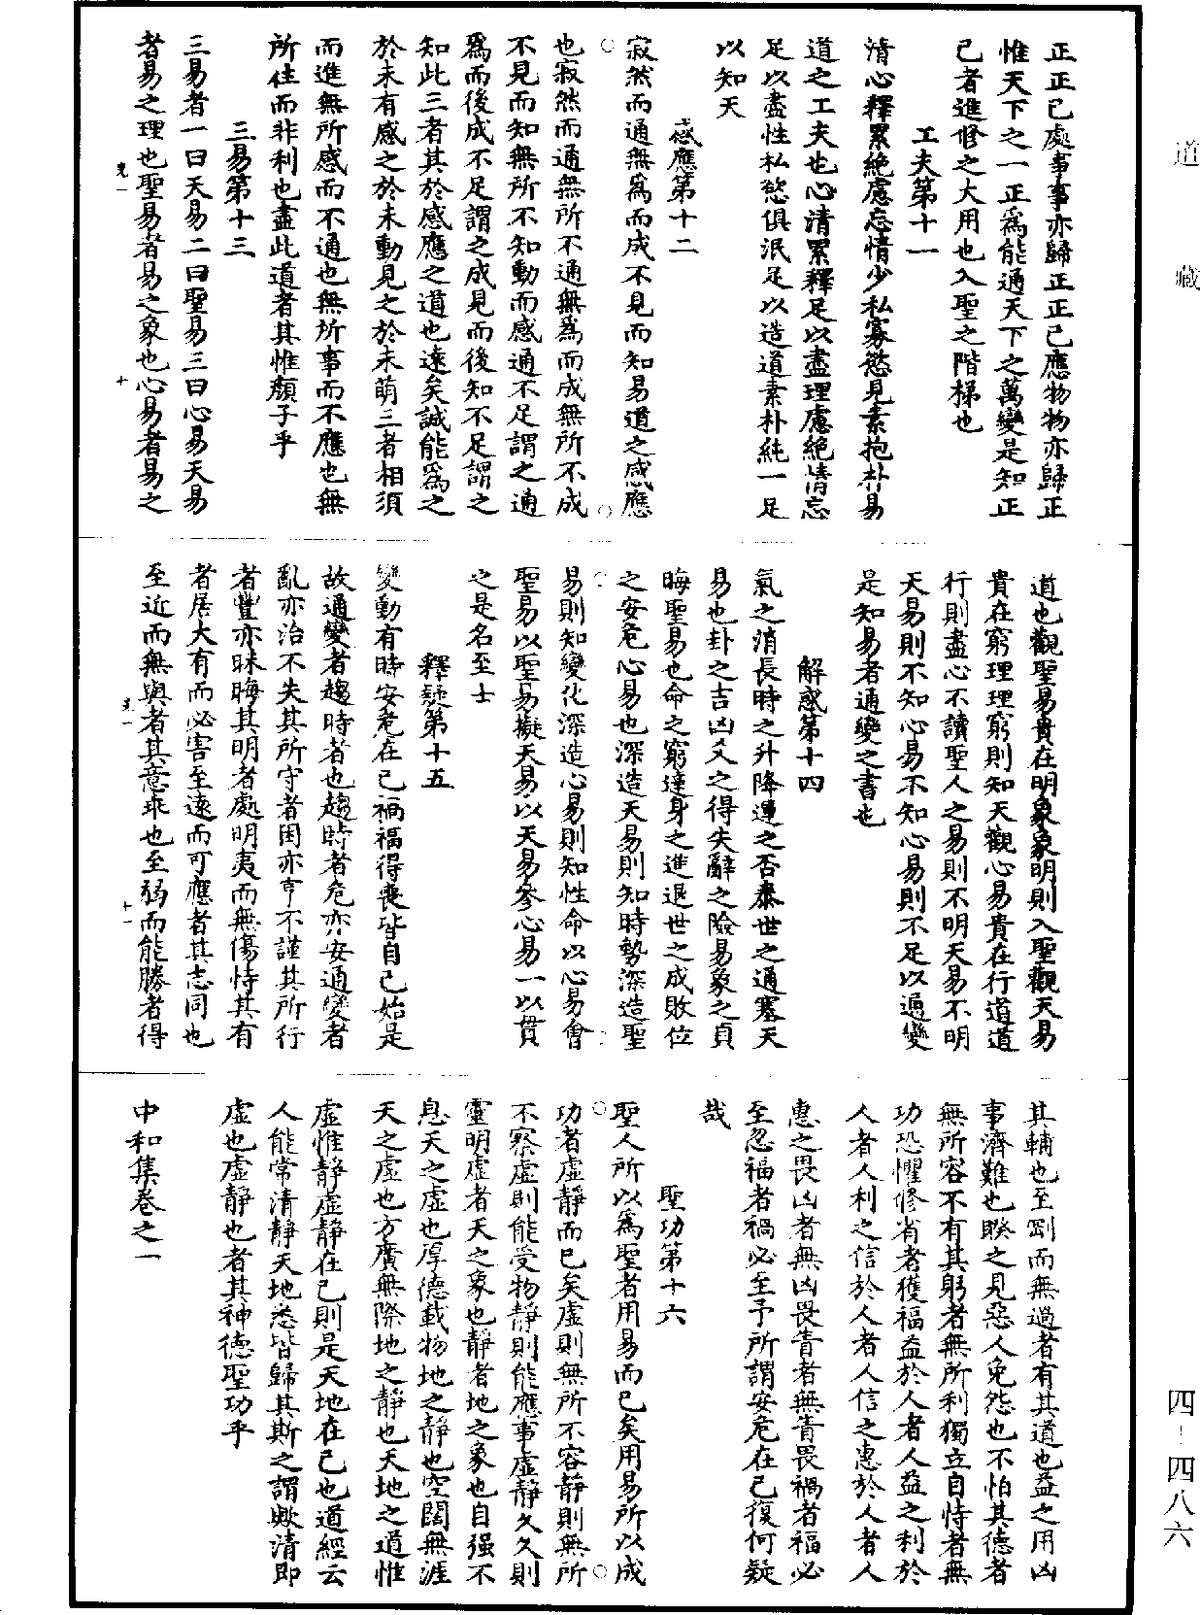 道藏
正正已處事事亦歸正正已應物物亦歸正
惟天下之一正爲能通天下之萬變是知正
己者進修之大用也入聖之階梯也
工夫第十一
清心釋累絕慮忘情少私寡慾見素抱朴易
道之工夫也心清累釋足以盡理慮絕情忘
足以盡性私慾俱泯足以造道素朴純一足
以知天
感應第十二
寂然而通無爲而成不見而知易道之感應
也寂然而通無所不通無爲而成無所不成
不見而知無所不知動而感通不足謂之通
爲而後成不足謂之成見而後知不足謂之
知此三者其於感應之道也遠矣誠能爲之
於未有感之於未動見之於未萌三者相須
而進無所感而不通也無所事而不應也無
所住而非利也盡此道者其惟顏子乎
三易第十三
三易者一曰天易二曰聖易三曰心易天易
者易之理也聖易者易之象也心易者易之
道也觀聖易貴在明象象明則入聖觀天易
貴在窮理理窮則知天觀心易貴在行道道
行則盡心不讀聖人之易則不明天易不明
天易則不知心易不知心易則不足以通變
是知易者通變之書也
解惑第十四
氣之消長時之升降運之否泰世之通塞天
易也卦之吉凶爻之得失辭之險易象之貞
晦聖易也命之窮達身之進退世之成敗位
之安危心易也深造天易則知時勢深造聖
易則知變化深造心易則知性命以心易會
聖易以聖易擬天易以天易參心易一以貫
之是名至士
釋疑第十五
變動有時安危在己禍福得喪皆自己始是
故通變者趨時者也趨時者危亦安通變者
亂亦治不失其所守者困亦亨不謹其所行
者豐亦昧晦其明者處明夷而無傷恃其有
者居大有而必害至遠而可應者其志同也
至近而無與者其意乖也至弱而能勝者得
其輔也至剛而無過者有其道也益之用凶
事濟難也睽之見惡人免怨也不怕其德者
無所容不有其躬者無所利獨立自恃者無
功恐懼修省者獲福益於人者人益之利於
人者人利之信於人者人信之惠於人者人
惠之畏凶者無凶畏眚者無眚畏禍者福必
至忽福者禍必至予所謂安危在己復何疑
哉
聖功第十六
聖人所以爲聖者用易而已矣用易所以成
功者虛靜而已矣虛則無所不容靜則無所
不察虛則能受物靜則能應事虛靜久久則
靈明虛者天之象也靜者地之象也自强不
息天之虛也厚德載物地之靜也空闊無涯
天之虛也方廣無際地之靜也天地之道惟
虛惟靜虛靜在己則是天地在己也道經云
人能常清靜天地悉皆歸其斯之謂歟清即
虛也虛靜也者其神德聖功乎
中和集卷之一
四－四八六